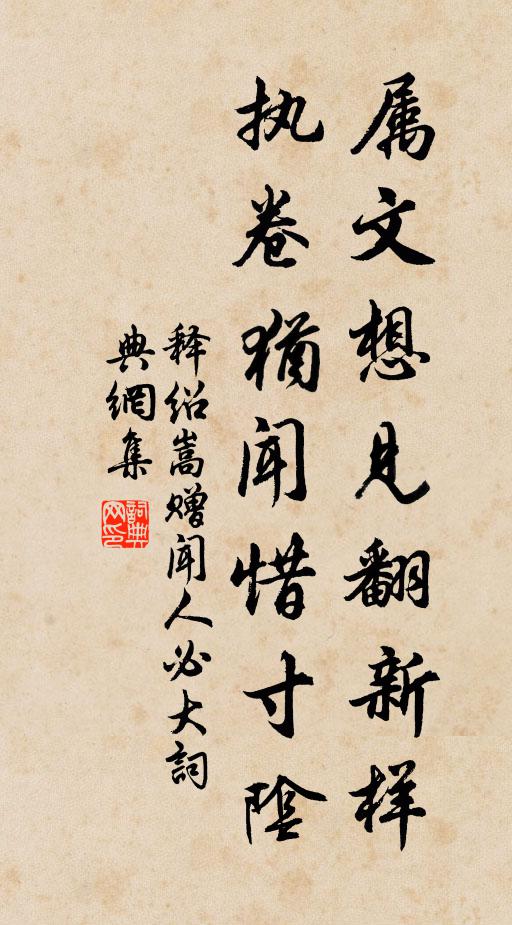 属文想见翻新样
执卷犹闻惜寸陰
释绍嵩赠闻人必大詞
典網集
詞典網印